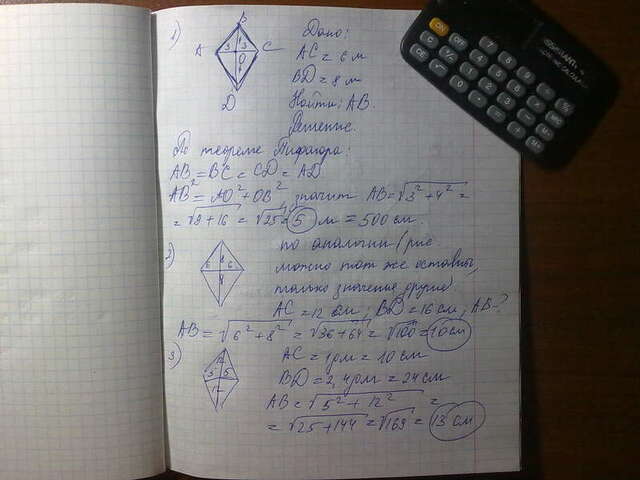 1)
B
A 3 3 C
O
D
Дано:
AC = 6 м
BD = 8 м
Найти: AB.
Решение.
По теореме Пифагора:
AB = BC = CD = AD
AB² = AO² + OB², значит AB = √3² + 4² =
= √9 + 16 = √25 = 5 м = 500 см.
2)
6 6
8
по аналогии (рис.
можно тот же оставить,
только значения другие)
AC = 12 см, BD = 16 см, AB - ?
AB = √6² + 8² = √36 + 64 = √100 = 10 см
3)
5 5
12
AC = 1 дм = 10 см
BD = 2,4 дм = 24 см
AB = √5² + 12² =
= √25 + 144 = √169 = 13 см